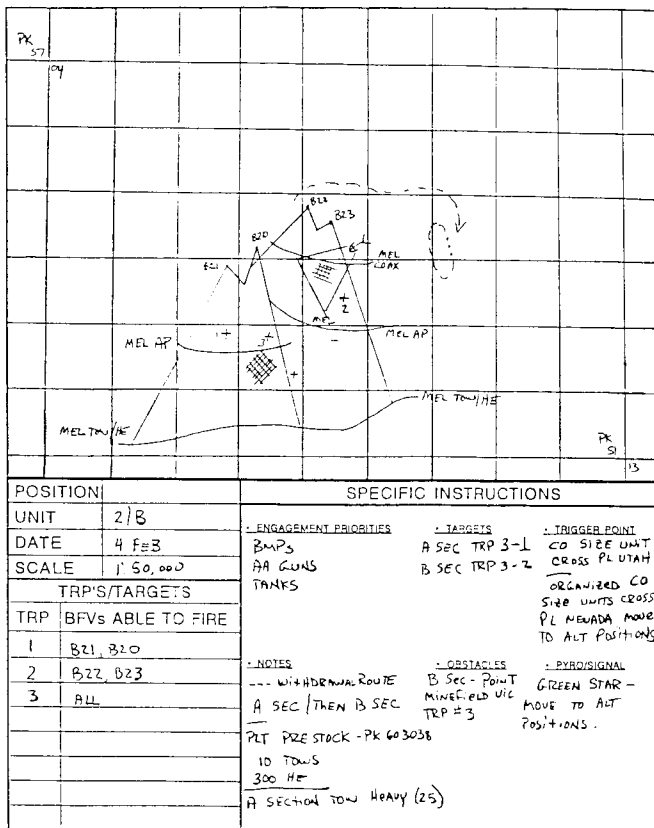 PK
57
04
B22
B23
B20
B21
MEL
COAX
1 +
3 +
+ 2
MEL
MEL AP
MEL AP
MEL TOW/HE
MEL TOW/HE
PK
51
13
POSITION
UNIT 2/B
DATE 4 FEB
SCALE 1' 50,000
TRP'S/TARGETS
TRP BFVs ABLE TO FIRE
1 B21, B20
2 B22, B23
3 ALL
SPECIFIC INSTRUCTIONS
· ENGAGEMENT PRIORITIES
BMPs
AA GUNS
TANKS
· TARGETS
A SEC TRP 3-1
B SEC TRP 3-2
· TRIGGER POINT
CO SIZE UNIT
CROSS PL UTAH
ORGANIZED CO
SIZE UNITS CROSS
PL NEVADA MOVE
TO ALT POSITIONS
· NOTES
--- WITHDRAWAL ROUTE
A SEC / THEN B SEC
PLT PRESTOCK - PK 603038
10 TOWS
300 HE
A SECTION TOW HEAVY (25)
· OBSTACLES
B SEC - POINT
MINEFIELD VIC
TRP #3
· PYRO/SIGNAL
GREEN STAR -
MOVE TO ALT
POSITIONS.